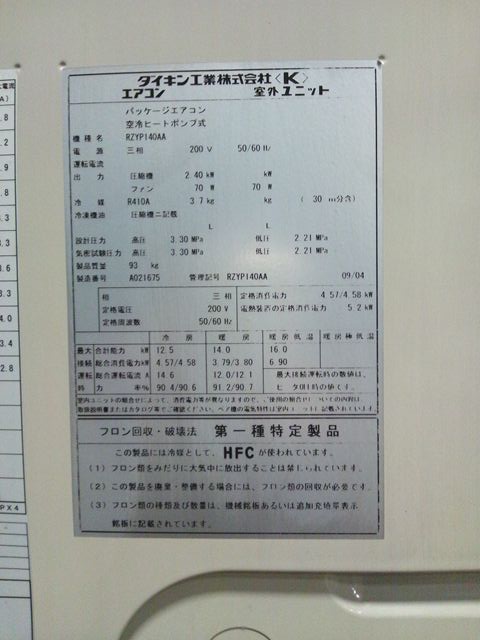 タイキン工業株式会社〈K〉
エアコン 室外ユニット
パッケージエアコン
空冷ヒートポンプ式
機種名 RZYP140AA
電源 三相 200 V 50/60 Hz
運転電流
出力 圧縮機 2.40 kW kW
ファン 70 W 70 W
冷媒 R410A 3.7 kg kg ( 30 m分含)
冷凍機油 圧縮機ニ記載
L L
設計圧力 高圧 3.30 MPa 低圧 2.21 MPa
気密試験圧力 高圧 3.30 MPa 低圧 2.21 MPa
製品質量 93 kg
製造番号 A021675 管理記号 RZYP140AA 09/04
相 三相 定格消費電力 4.57/4.58 kW
定格電圧 200 V 電熱装置の定格消費電力 5.2 kW
定格周波数 50/60 Hz
冷房 暖房 暖房低温 暖房極低温
最大 合計能力 kW 12.5 14.0 16.0
接続 総合消費電力 kW 4.57/4.58 3.79/3.80 6.90
運転 総合運転電流 A 14.6 12.0/12.1 最大接続運転時の数値は、
時 力率% 90.4/90.6 91.2/90.7 ヒータ0H時の値です。
室内ユニットの組合せによって、消費電力等が異なりますので、ご使用の組合せについての内容は
取扱説明書またはカタログ等でご確認ください。ペア機の電気特性は室内ユニットに記載されています
フロン回収・破壊法 第一種特定製品
この製品には冷媒として、HFCが使われています。
(1) フロン類をみだりに大気中に放出することは禁じられています。
(2) この製品を廃棄・整備する場合には、フロン類の回収が必要です。
(3) フロン類の種類及び数量は、機械銘板あるいは追加充填量表示
銘板に記載されています。
電流
A)
.8
.2
.9
.8
3.3
3.3
3.6
3.3
4.0
2.8
PX4